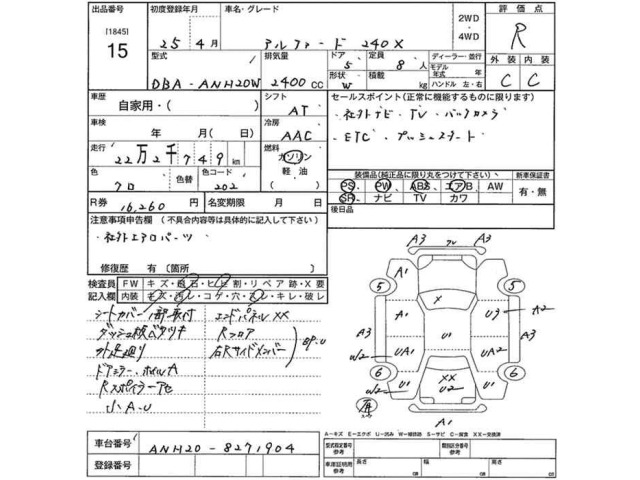 出品番号
[1845]
15
初度登録年月
25年4月
車名・グレード
アルファード 240X
2WD
・
4WD
評価点
R
型式
DBA-ANH20W
排気量
2400cc
ドア
5
形状
W
定員
8人
積載
kg
ディーラー・並行
モデル
年式
年
ハンドル 左・右
外装
内装
C
C
車歴
自家用・(
)
シフト
AT
車検
年 月(
日)
冷房
AAC
走行
22万2千749km
燃料
ガソリン
軽油
色
クロ
色替
色コード
202
R券
16,260円
名変期限
月
日
セールスポイント(正常に機能するものに限ります)
・社外ナビ・TV・バックカメラ
・ETC・プッシュスタート
装備品(純正品に限り丸をつけて下さい)
新車保証書
PS
PW
ABS
エアB
AW
SR
ナビ
TV
カワ
有・無
後日品
注意事項申告欄(不具合内容等は具体的に記入して下さい)
・社外エアロパーツ
修復歴 有〔箇所
〕
検査員
記入欄
FW
キズ・飛石・ヒビ割・リペア跡・X要
内装
キズ・汚レ・コゲ・穴・スレ・キレ・破レ
シートカバー1部取付
エンドパネルXX
Rフロア
右Rサイドメンバー
ドアミラー、ホイルA
Rスポイラー
小A・U
A3
A3
A1
5
5
X
A1
U1
U3
A2
A3
A3
W2
UA1
UA2
6
6
W2
U1
XX
U2
U1
A1
A-キズ E-エクボ U-凹み W-補修跡 S-サビ C-腐食 XX-交換済
車台番号
ANH20-8271904
登録番号
型式指定番号
参考
類別区分番号
参考
車庫証明用
参考
長さ
cm
幅
cm
高さ
cm